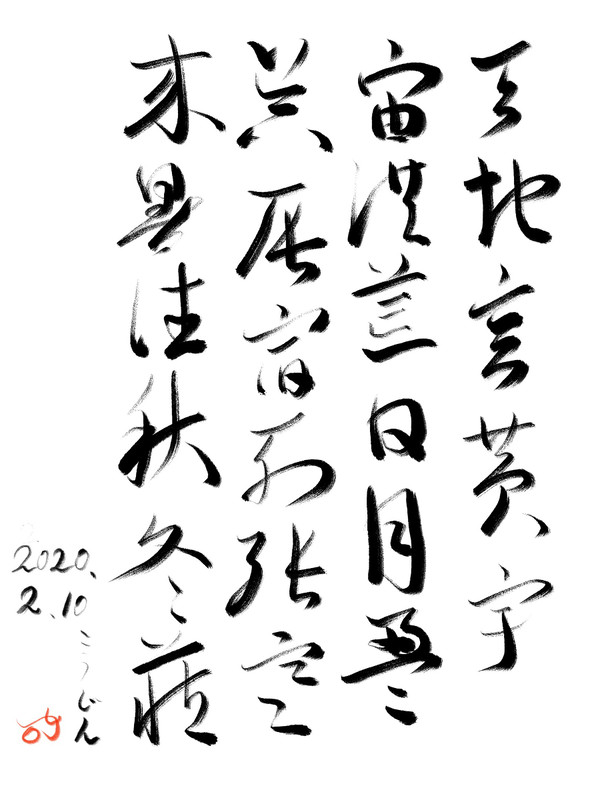 天地玄黄宇
宙洪荒日月盈
昃辰宿列张寒
来暑往秋冬藏
2020.
2.10
こうじん